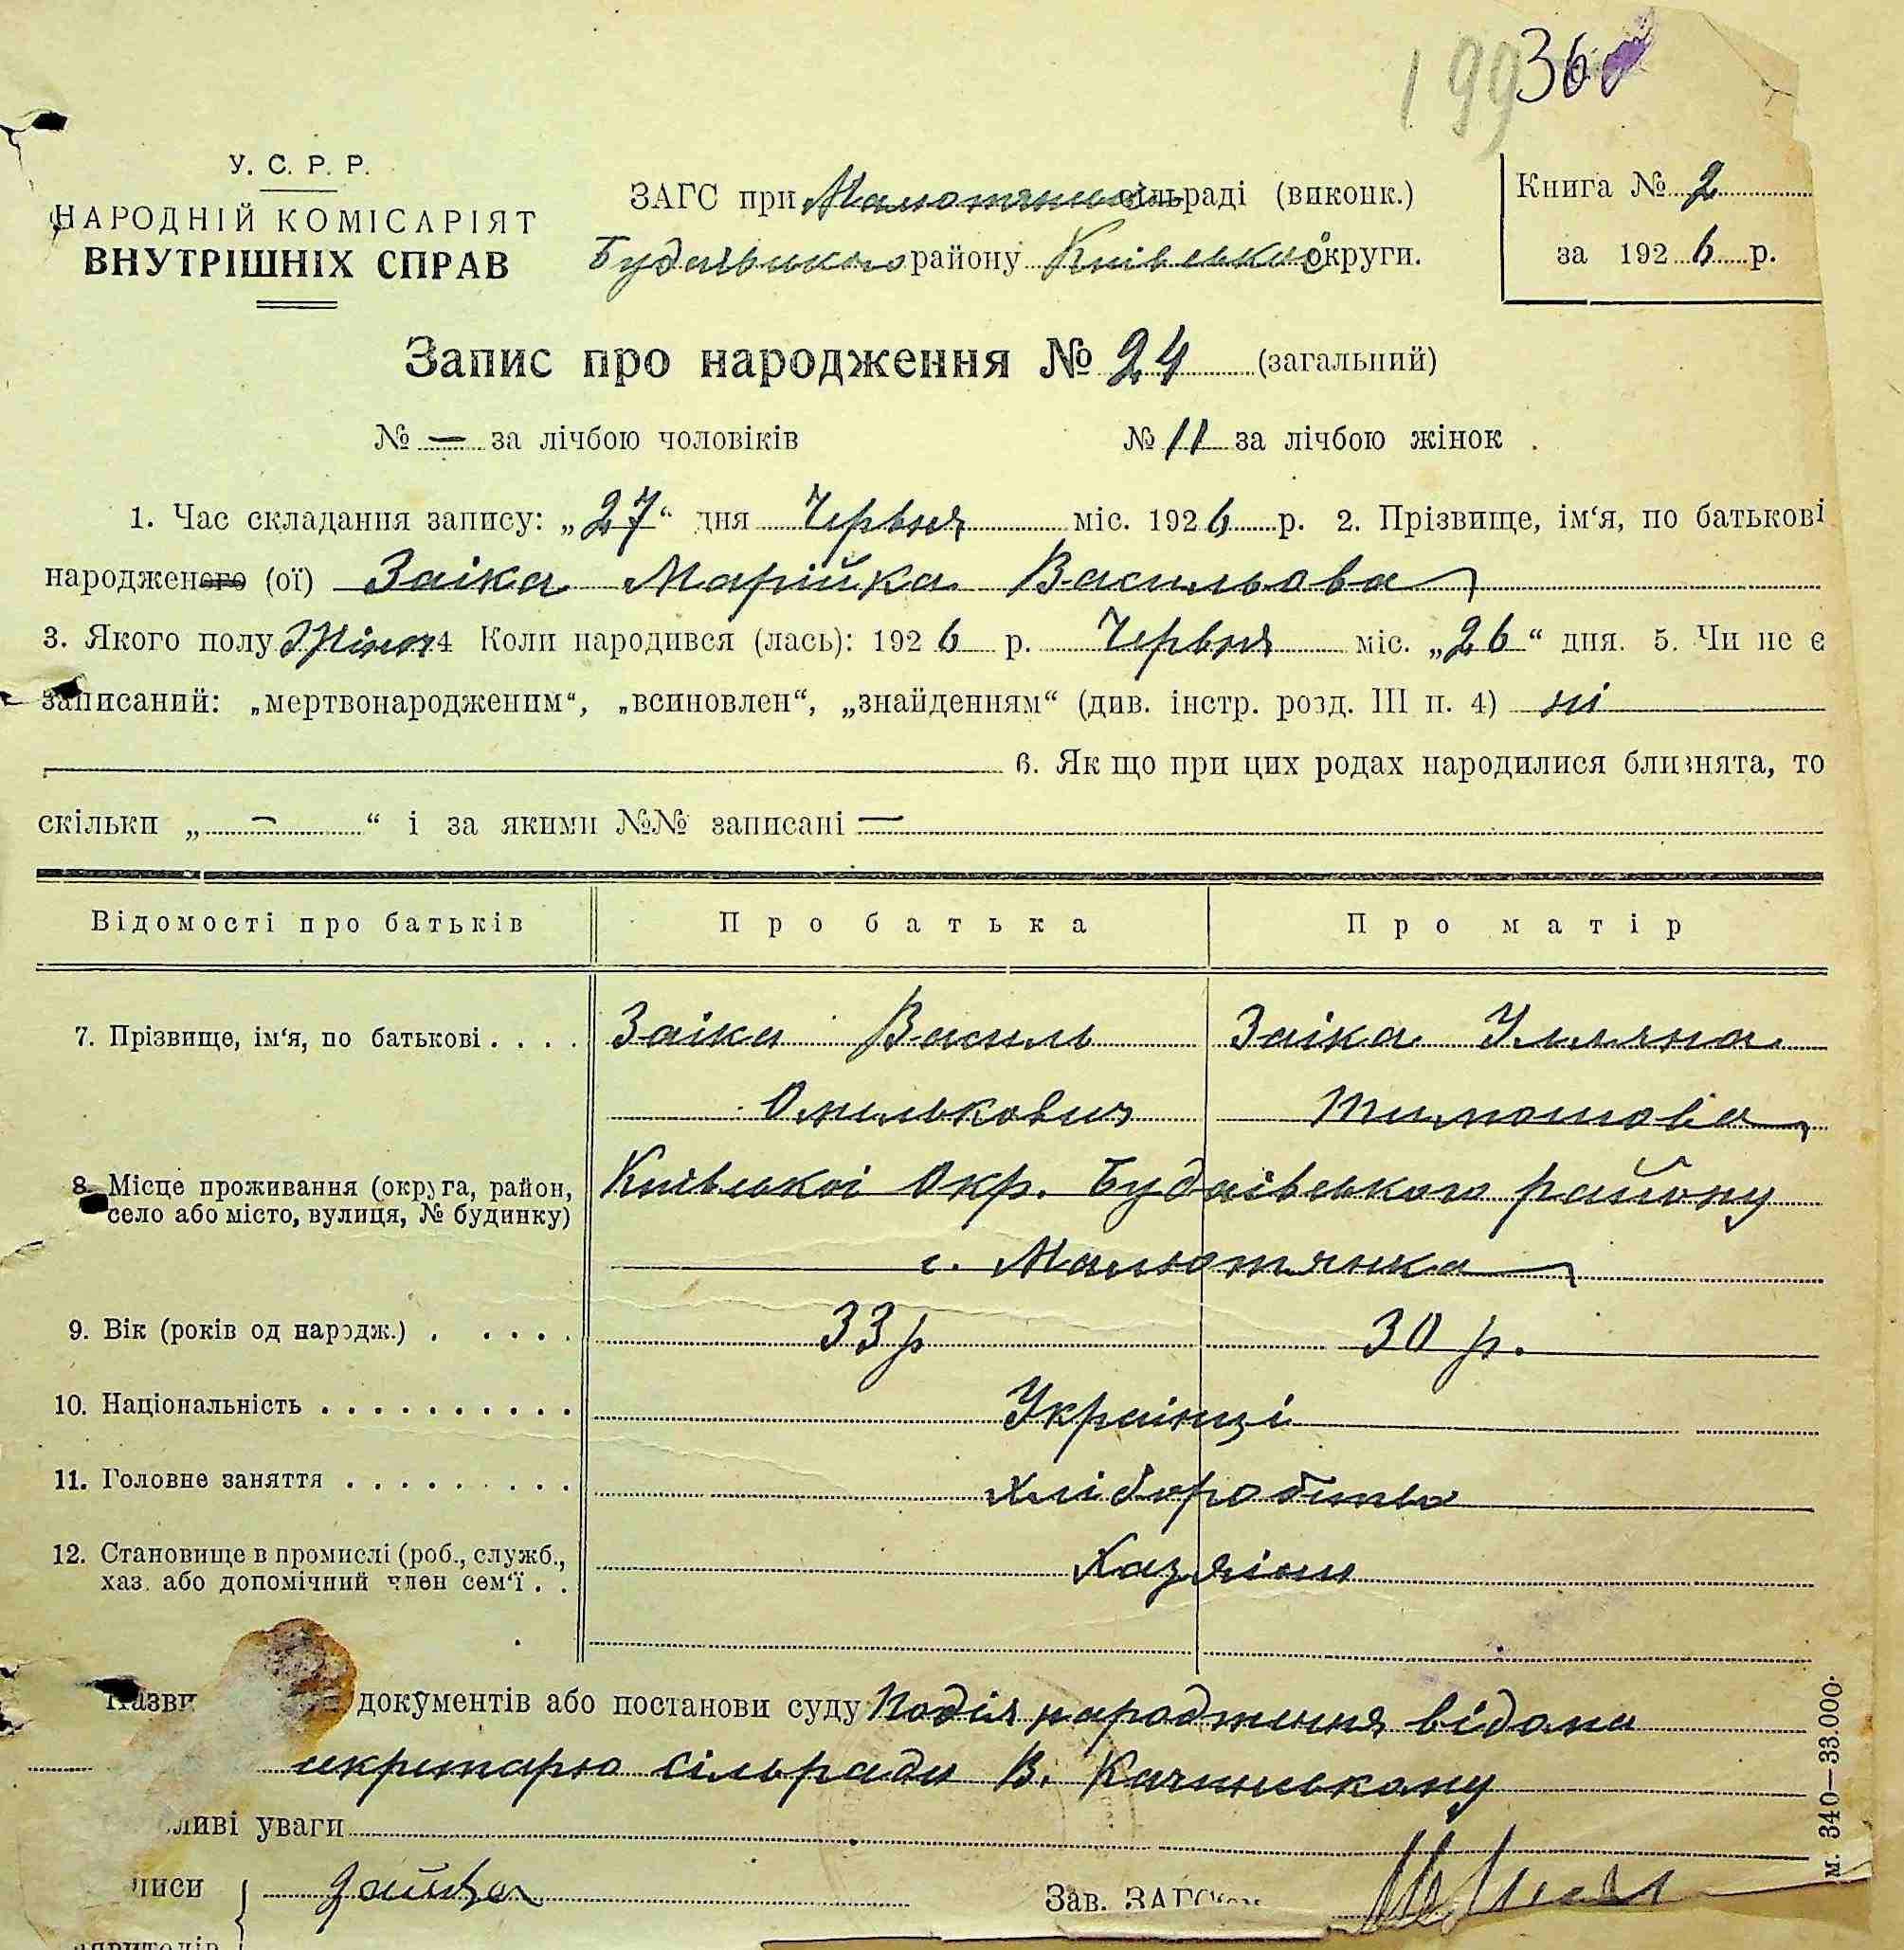 199 360
У. С. Р. Р.
НАРОДНІЙ КОМІСАРІЯТ
ВНУТРІШНІХ СПРАВ
ЗАГС при Малютянській сільраді (виконк.)
Будаівського району Київської округи.
Книга № 2
за 1926 р.
Запис про народження № 24 (загальний)
№ — за лічбою чоловіків № 11 за лічбою жінок
1. Час складання запису: „27“ дня Червня міс. 1926 р. 2. Прізвище, ім‘я, по батькові
народженого (ої) Заіка Марійка Васильова
3. Якого полу Жіноч 4 Коли народився (лась): 1926 р. Червня міс. „26“ дня. 5. Чи не є
записаний: „мертвонародженим“, „всиновлен“, „знайденням“ (див. інстр. розд. III п. 4) ні
6. Як що при цих родах народилися близнята, то
скільки „—“ і за якими №№ записані —
Відомості про батьків Про батька Про матір
7. Прізвище, ім‘я, по батькові . . . . Заіка Василь Заіка Уляна
Омелькович Тимошова
8. Місце проживання (округа, район, село або місто, вулиця, № будинку) Київської Окр. Будаівського району
с. Малютянка
9. Вік (років од народж.) . . . . . 33 р 30 р.
10. Національність . . . . . . . . . . Украінці
11. Головне заняття . . . . . . . . . Хліборобство
12. Становище в промислі (роб., служб., хаз. або допомічний член сем‘ї . . Хазяіни
Назви документів або постанови суду Подія народження відома
секретарю сільради В. Качинському
ливі уваги
писи Заіка Зав. ЗАГС‘ом
явителів
м. 340—33.000.